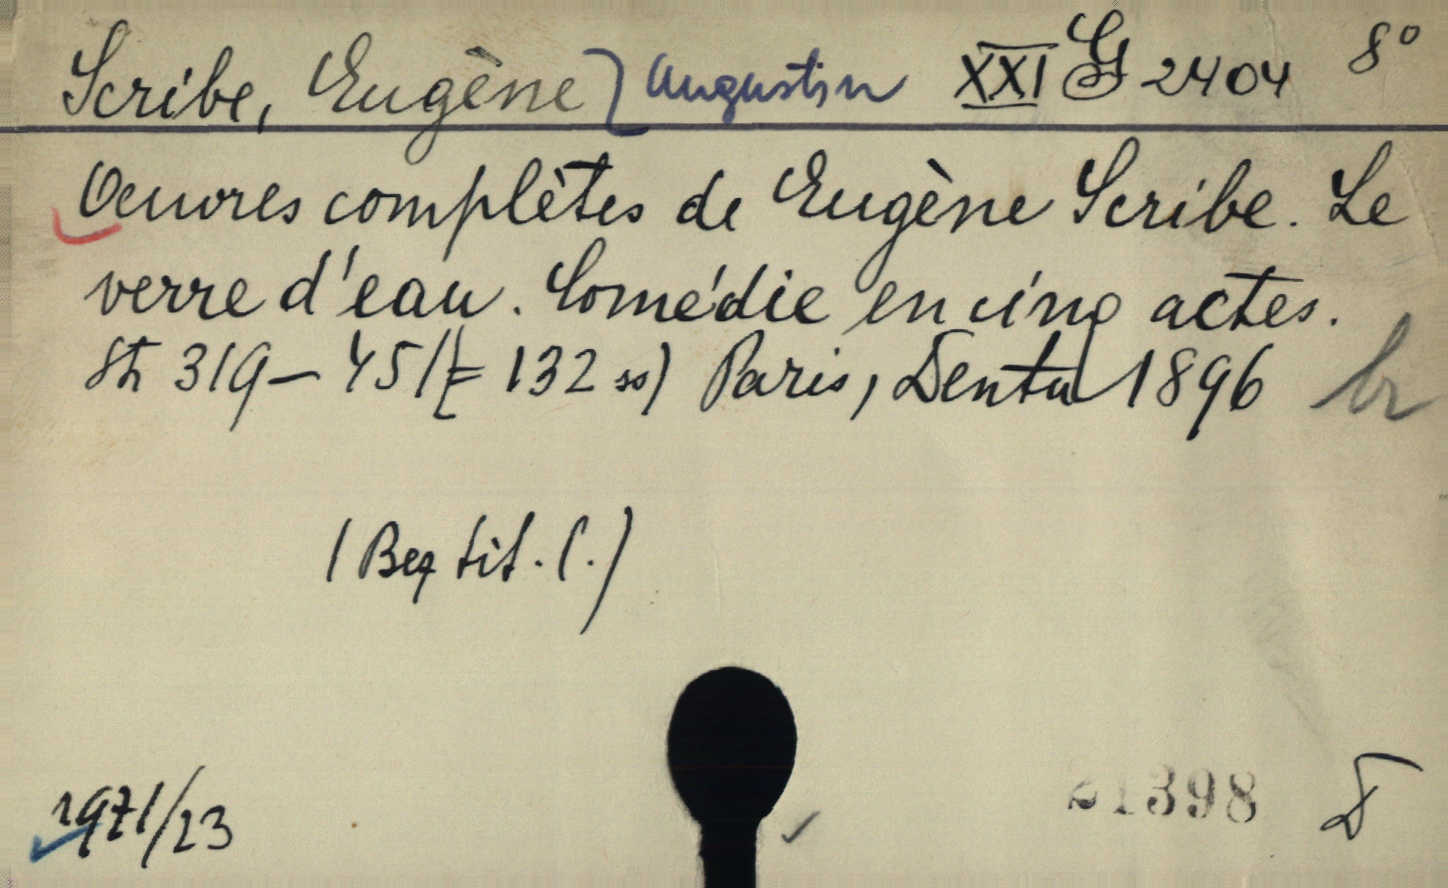 Scribe, Eugène) Augustin XXI G 2404 8°
Oeuvres complètes de Eugène Scribe. Le
verre d'eau. Comédie en cinq actes.
Str 319–451 (= 132 ss) Paris, Dentu 1896 br
(Bez tit. l.)
1971/23
21398